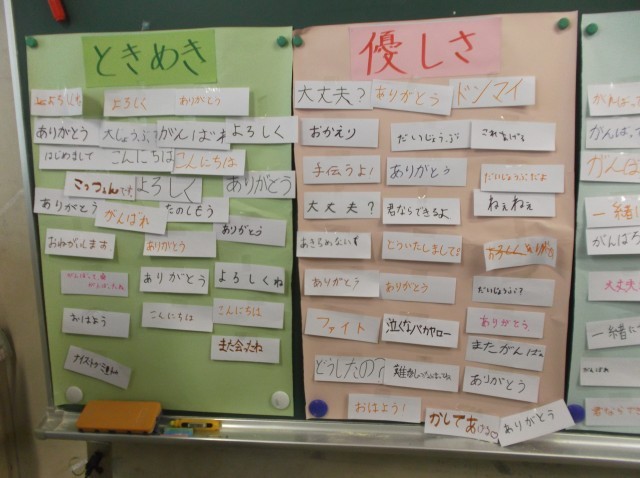 ときめき
よろしく
よろしく
ありがとう
ありがとう
大じょうぶ?
がんばれ
よろしく
はじめまして
こんにちは
こんにちは
よろしく
ありがとう
ありがとう
がんばれ
たのしもう
ありがとう
おねがいします
ありがとう
ありがとう
よろしくね
おはよう
こんにちは
こんにちは
また会ったね
優しさ
大丈夫?
ありがとう
ドンマイ
おかえり
だいじょうぶ?
手伝うよ!
ありがとう
だいじょうぶだよ
大丈夫?
君ならできるよ
ねぇねぇ
あきらめないで
どういたしまして!
ありがとう
ありがとう
だいじょうぶ?
ファイト
泣くなバカヤロー
ありがとう
またがんばね
どうしたの?
ありがとう
おはよう!
かしてあげる♡
ありがとう
がんばっ
がんばっ
がんば
一緒
がんばろ
大丈夫
一緒に
がんばれ
君なら